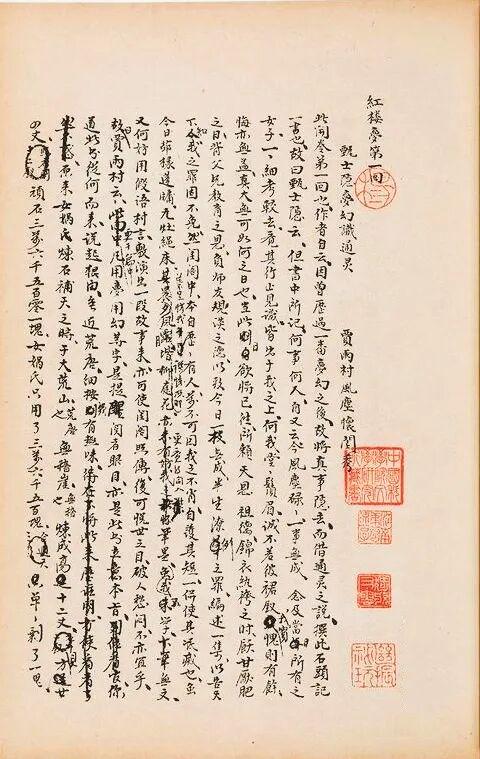 紅楼夢第一回
甄士隐夢幻識通灵 賈雨村風塵懷閨秀
此開卷第一回也作者自云因曾歴過一番夢幻之後故將真事隐去而借通灵之說撰此石頭記
一书也故曰甄士隐云云但書中所記何事何人自又云今風塵碌碌一事無成忽念及當日所有之
女子一一細考較去覺其行止見識皆出于我之上何我堂堂鬚眉誠不若彼裙釵我實愧則有餘
悔亦無益真大無可如何之日也當此則自欲將已往所頼天恩祖德錦衣紈袴之时飫甘饜肥
之日背父兄教育之恩負師友規談之德以致今日一技無成半生潦倒之罪編述一集以告天下
知我之罪固不免然閨閣中本自歴歴有人萬不可因我之不肖自護其短一併使其泯滅也虽
今日茅椽蓬牖瓦灶繩床其晨夕風露堦柳庭花
又何妨用假语村言敷演出一段故事来亦可使閨閣照傳復可悦世之目破人愁悶不亦宜乎
故曰賈雨村云云此回中凡用夢用幻等字是提醒閱者眼目亦是此书立意本旨
道此书從何而来說起根由虽近荒唐細按則有趣味待在下將此来歴註明方使閱者
原来女媧氏煉石補天之時于大荒山無稽崖煉成高十二丈方二十
四丈頑石三萬六千五百零一塊女媧氏只用了三萬六千五百塊只单单剩了一塊